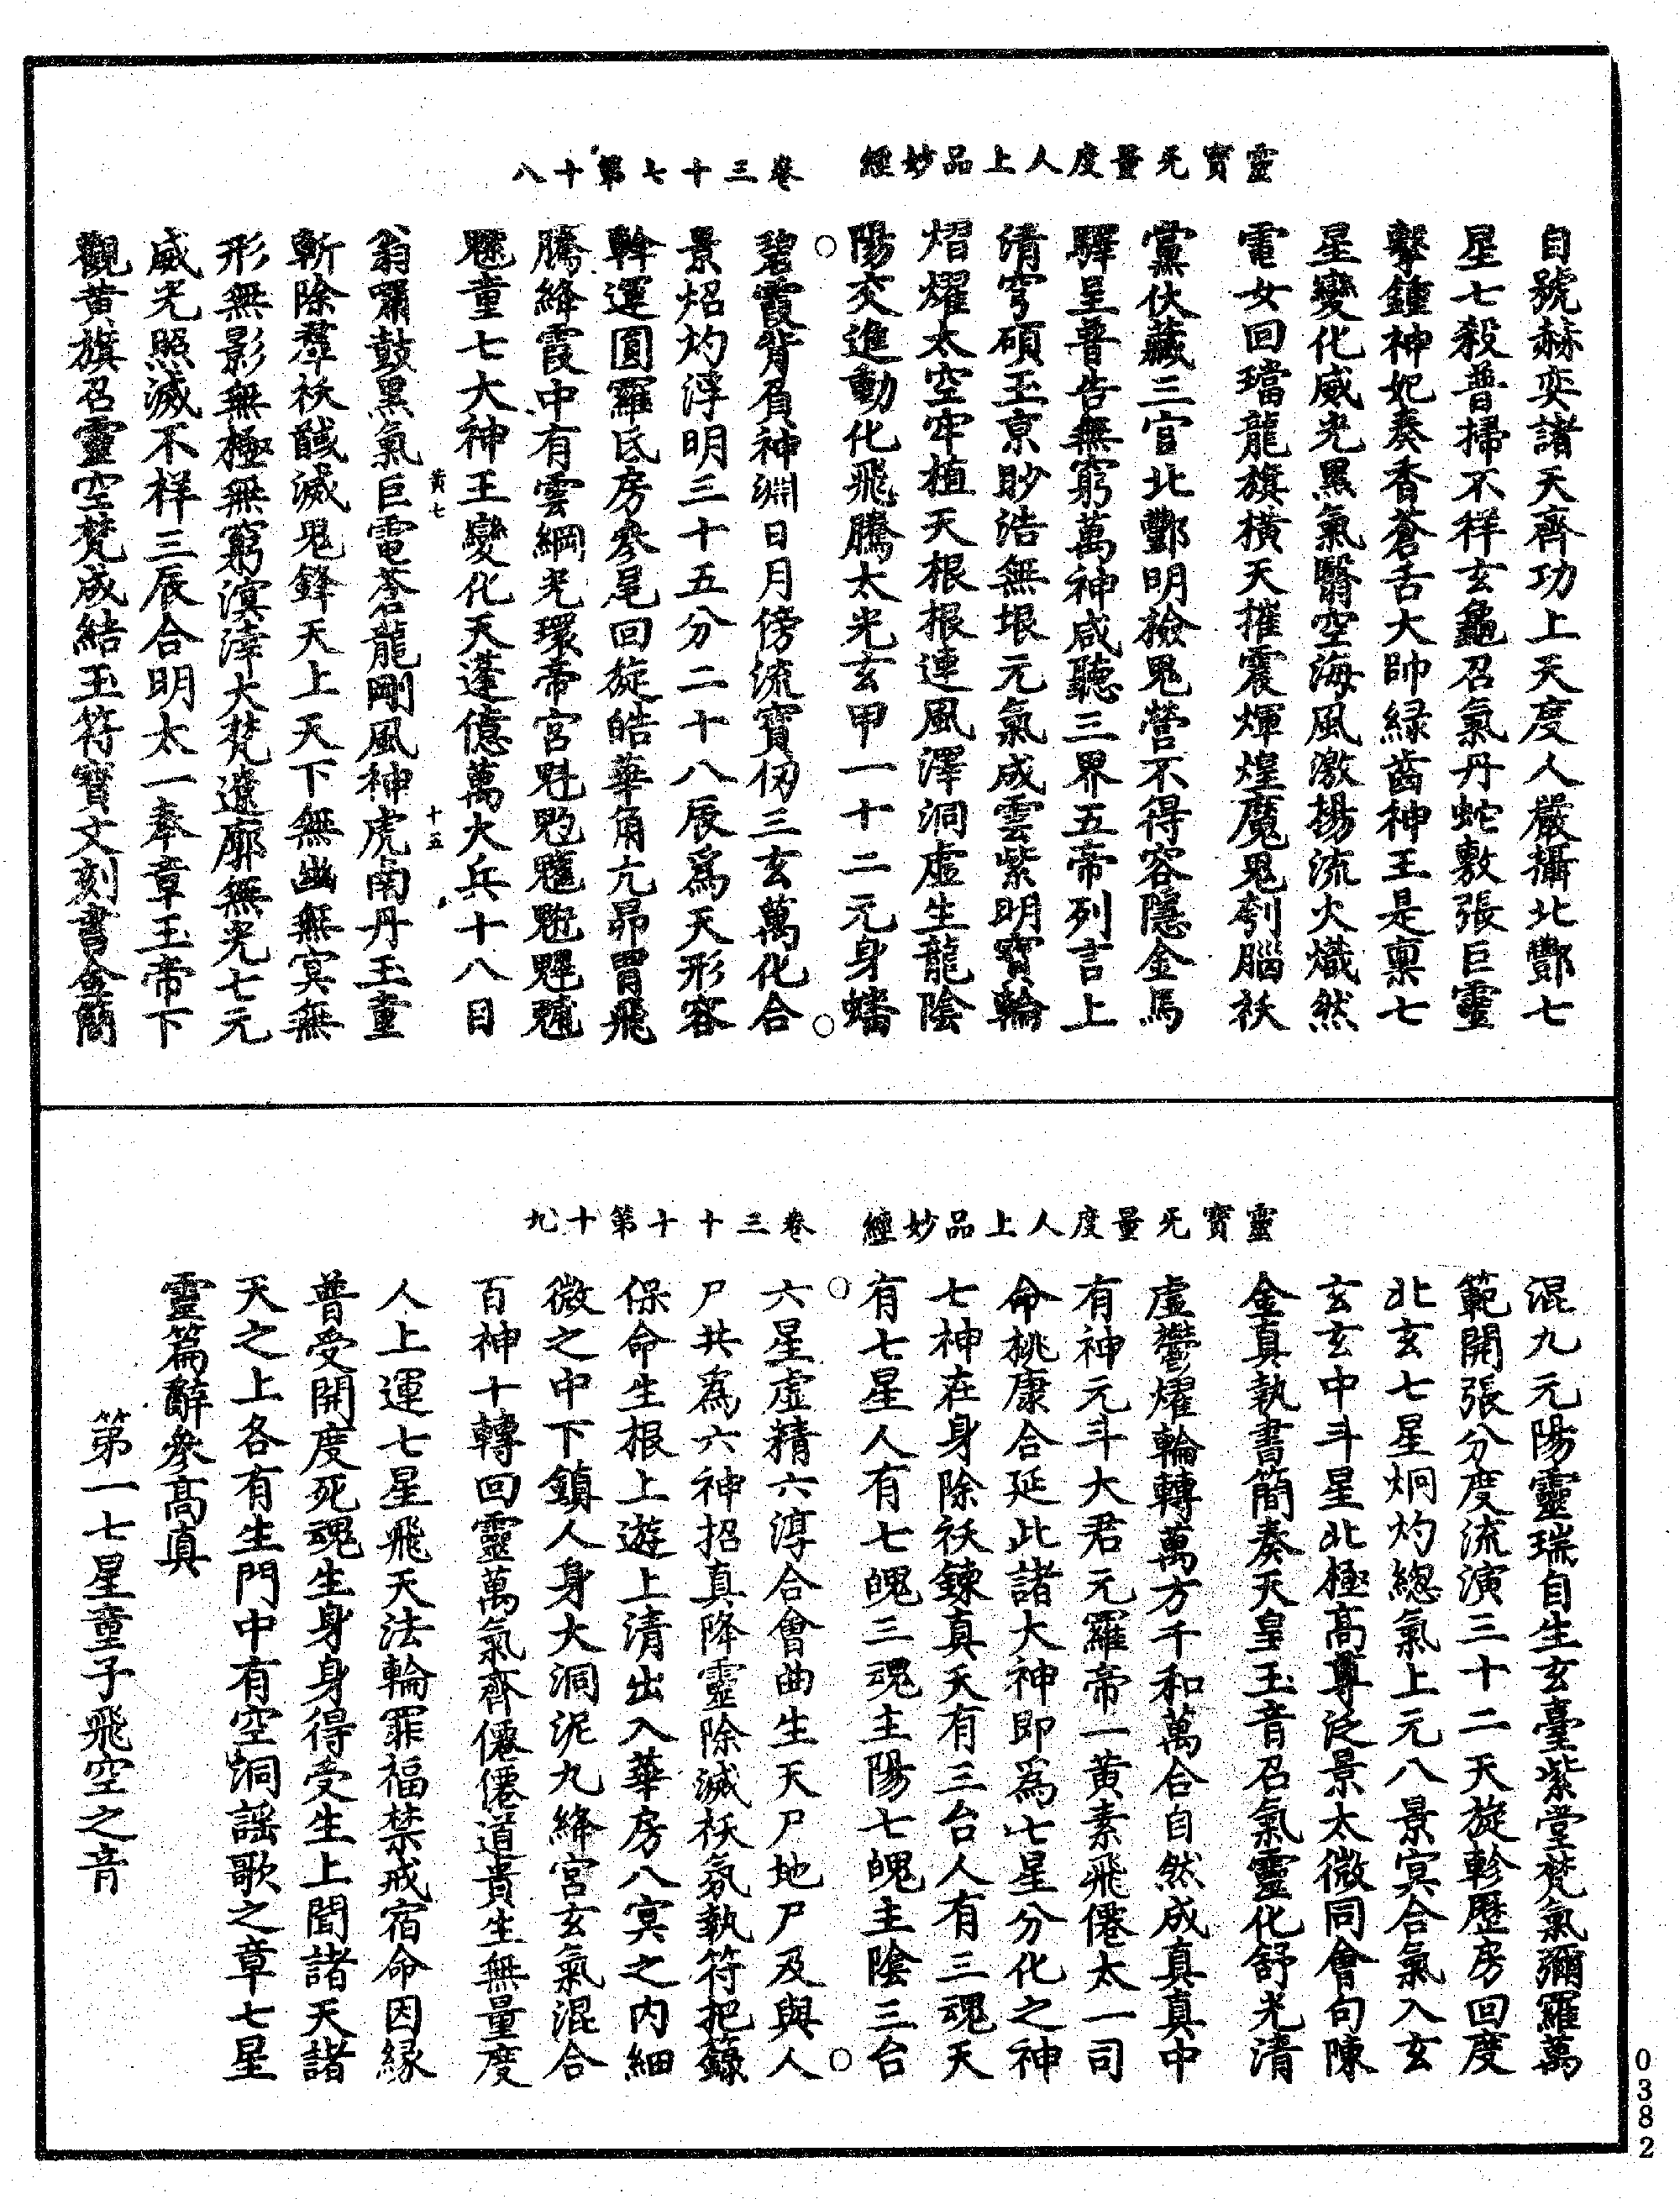 靈寶无量度人上品妙經　卷三十七第十八
自號赫奕諸天齊功上天度人嚴攝北酆七
星七殺普掃不祥玄龜召氣丹蛇敷張巨靈
擊鐘神妃奏香蒼舌大帥緑齒神王是稟七
星變化威光黑氣翳空海風激揚流火熾然
電女回璫龍旗橫天摧震煇煌魔鬼刳腦祅
黨伏藏三官北酆明檢鬼營不得容隱金馬
驛呈普告無窮萬神咸聽三界五帝列言上
清穹碩玉京眇浩無垠元氣成雲紫明寶輪
熠燿太空牢植天根根連風澤洞虛生龍陰
陽交進動化飛騰太光玄甲一十二元身蟠
碧霞背負神淵日月傍流寶仞三玄萬化合
景炤灼浮明三十五分二十八辰爲天形容
斡運圓羅氐房參尾回旋皓華角亢昴胃飛
騰絳霞中有雲綱光環帝宮魁𩲃䰢魓魒
魅童七大神王變化天蓬億萬大兵十八目
黃七　十五
翁嘯鼓黑氣巨電荅龍剛風神虎南丹玉童
斬除羣祅馘滅鬼鋒天上天下無幽無冥無
形無影無極無窮溟涬大梵遼廓無光七元
威光照滅不祥三辰合明太一奉章玉帝下
觀黃旗召靈空梵成結玉符寶文刻書金簡
靈寶无量度人上品妙經　卷三十十第十九
混九元陽靈瑞自生玄臺紫堂梵氣彌羅萬
範開張分度流演三十二天旋軫歷房回度
北玄七星炯灼總氣上元八景冥合氣入玄
玄玄中斗星北極高尊泛景太微同會句陳
金真執書簡奏天皇玉音召氣靈化舒光清
虛鬱燿輪轉萬方千和萬合自然成真真中
有神元斗大君元羅帝一黃素飛僊太一司
命桃康合延此諸大神即爲七星分化之神
七神在身除祅鍊真天有三台人有三魂天
有七星人有七魄三魂主陽七魄主陰三台
六星虛精六淳合會曲生天尸地尸及與人
尸共爲六神招真降靈除滅祅氛執符把籙
保命生根上遊上清出入華房八冥之內細
微之中下鎮人身大洞泥九絳宮玄氣混合
百神十轉回靈萬氣齊僊僊道貴生無量度
人上運七星飛天法輪罪福禁戒宿命因緣
普受開度死魂生身身得受生上聞諸天諸
天之上各有生門中有空洞謠歌之章七星
靈篇辭參高真
第一七星童子飛空之音
0382